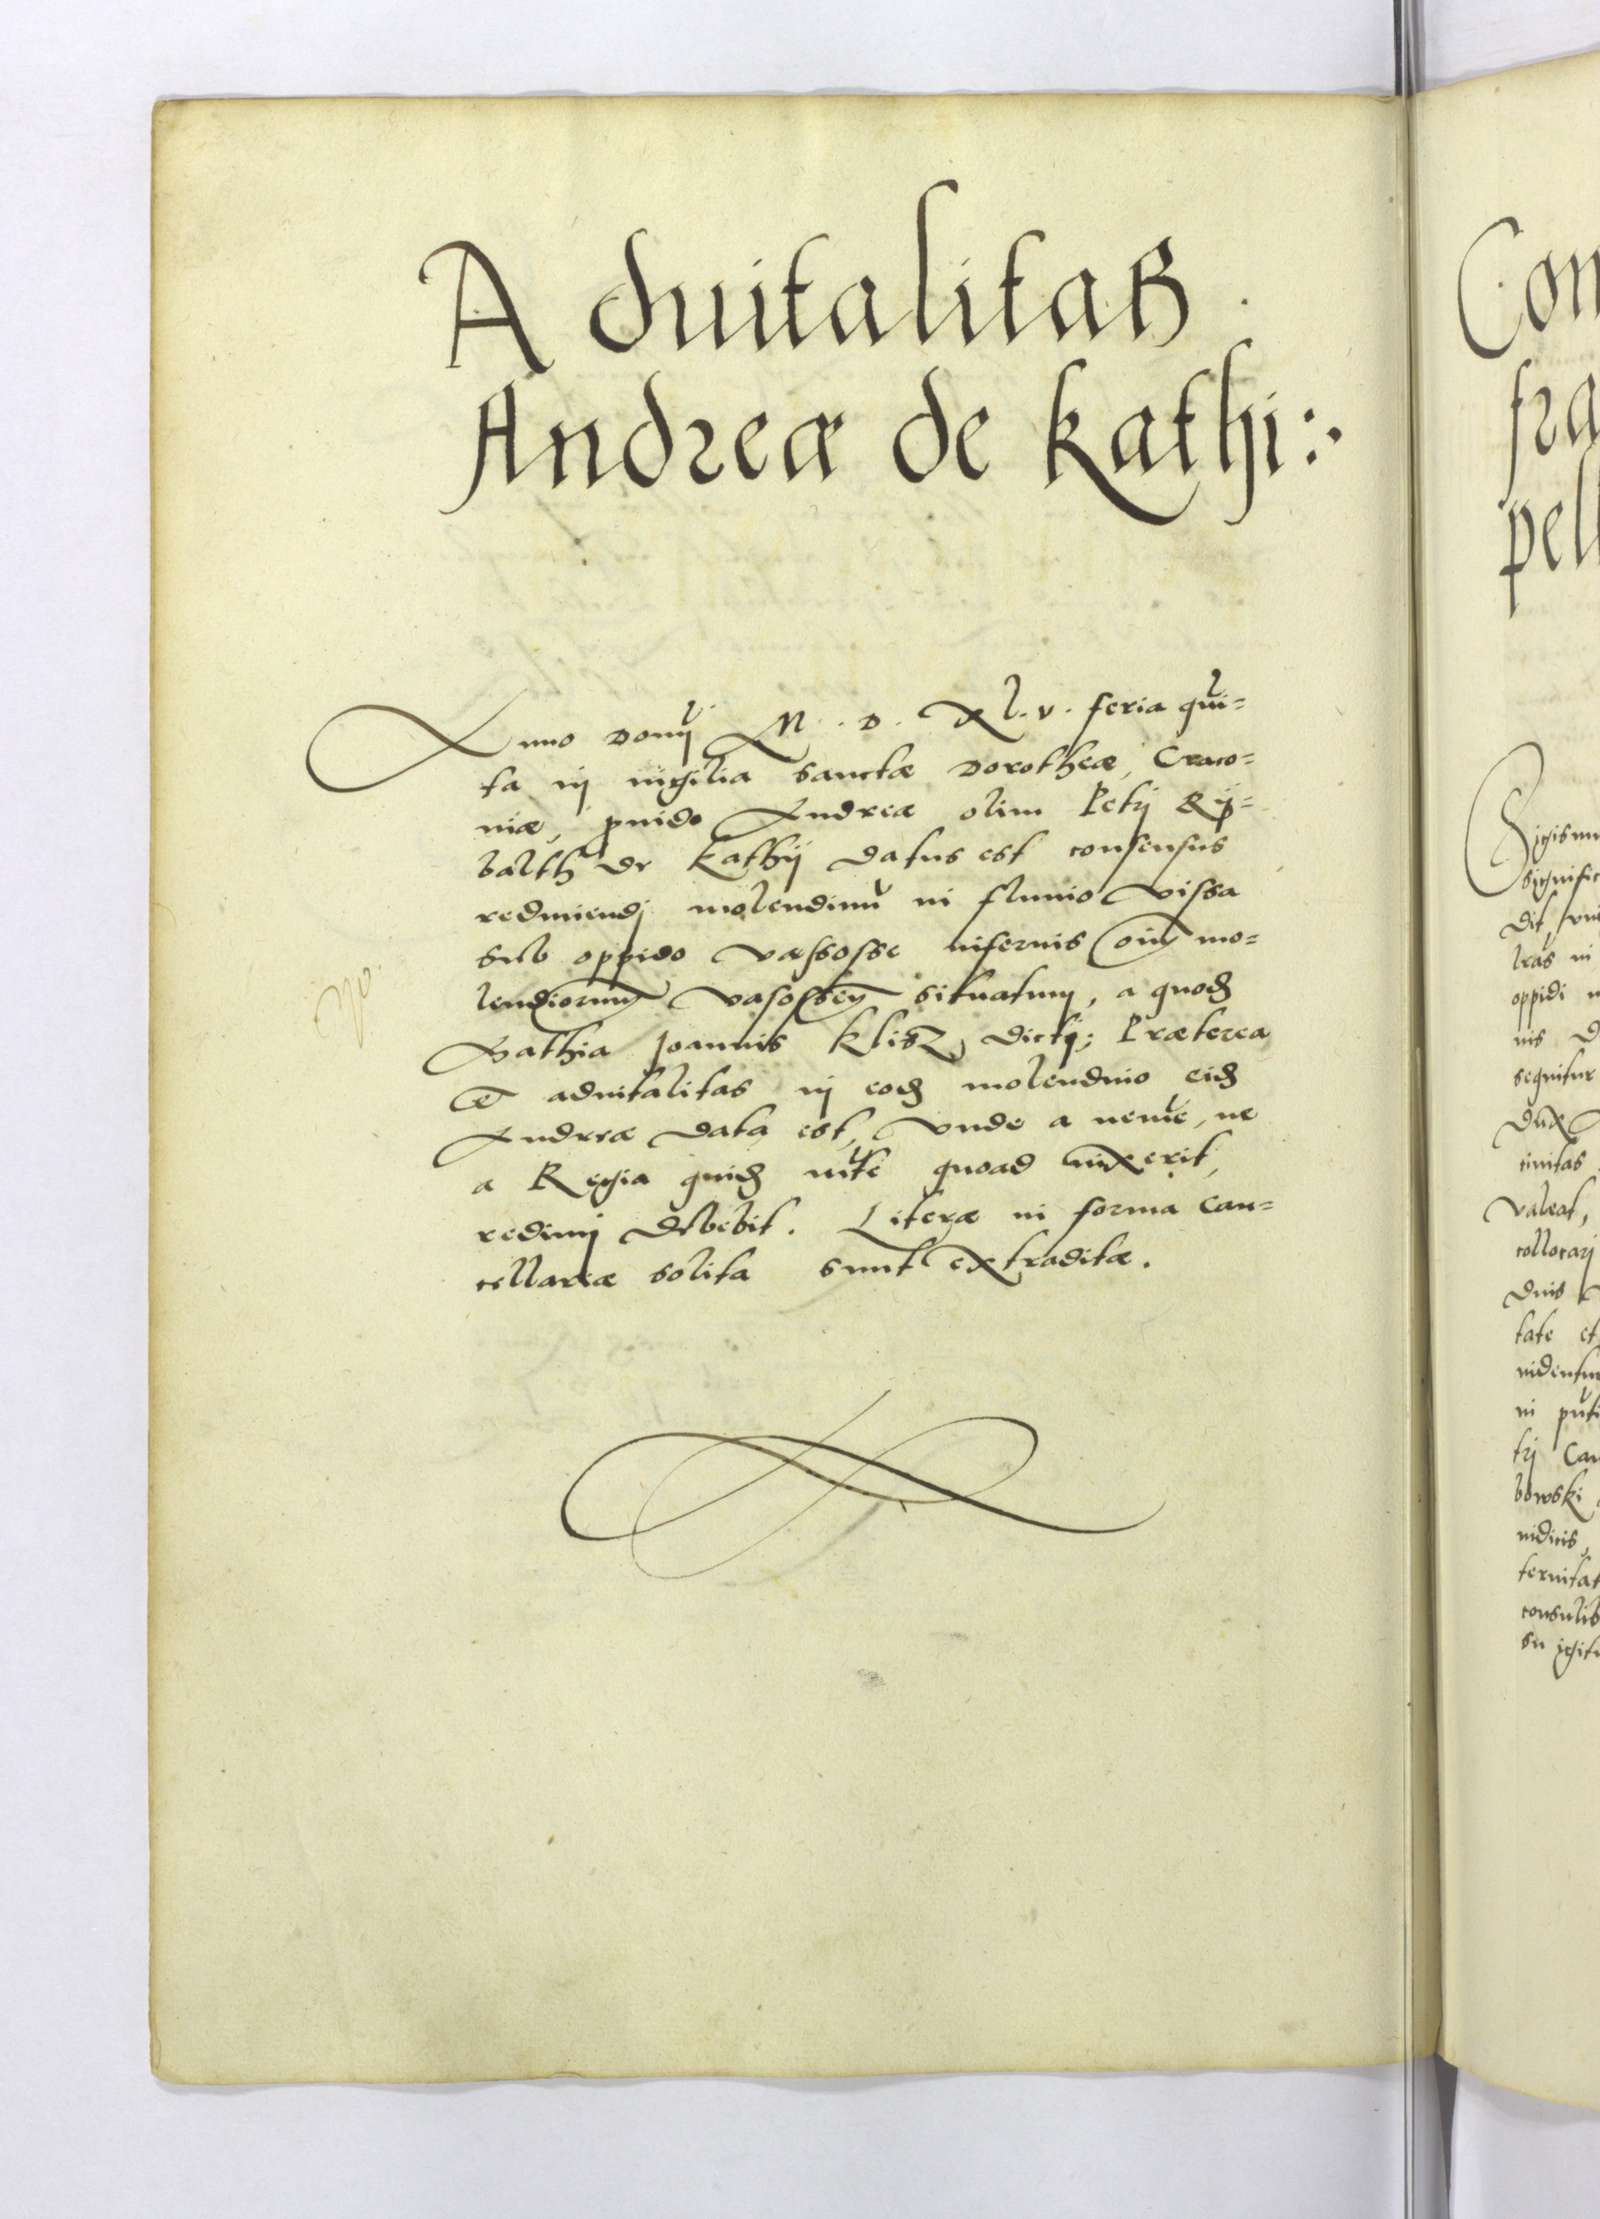 Aduitalitas
Andreæ de Kathi:.
Anno Domĩ M. D. Xl. v. feria qui=
ta in uigilia Sanctæ Dorotheæ, Craco=
uiæ, puido Andreæ olim Petri Ry=
balth de Kathy datus est consensus
redimendj molendinũ in fluuio Vissa
sub oppido Vassosse inferius oim mo=
lendinorum Vasossen situatum, a quodã
Mathia Joannis Klisz dictj; Præterea
et aduitalitas in eodẽ molendino eidẽ
Andreæ data est, Vnde a nemie, ne
a Regia quidẽ mte quoad uixerit,
redimj debebit. Literæ in forma Can=
cellariæ solita sunt extraditæ.
Con
fra
pell
Sigismu
signific
dit, 
lras in
oppidi
nis D
sequitur
Dux
ciuitas
Valeat,
collocarj
Dnis
tate et
uidentur
in
trj Can
bowski
iudicis,
ternitat
consulib
su igitu